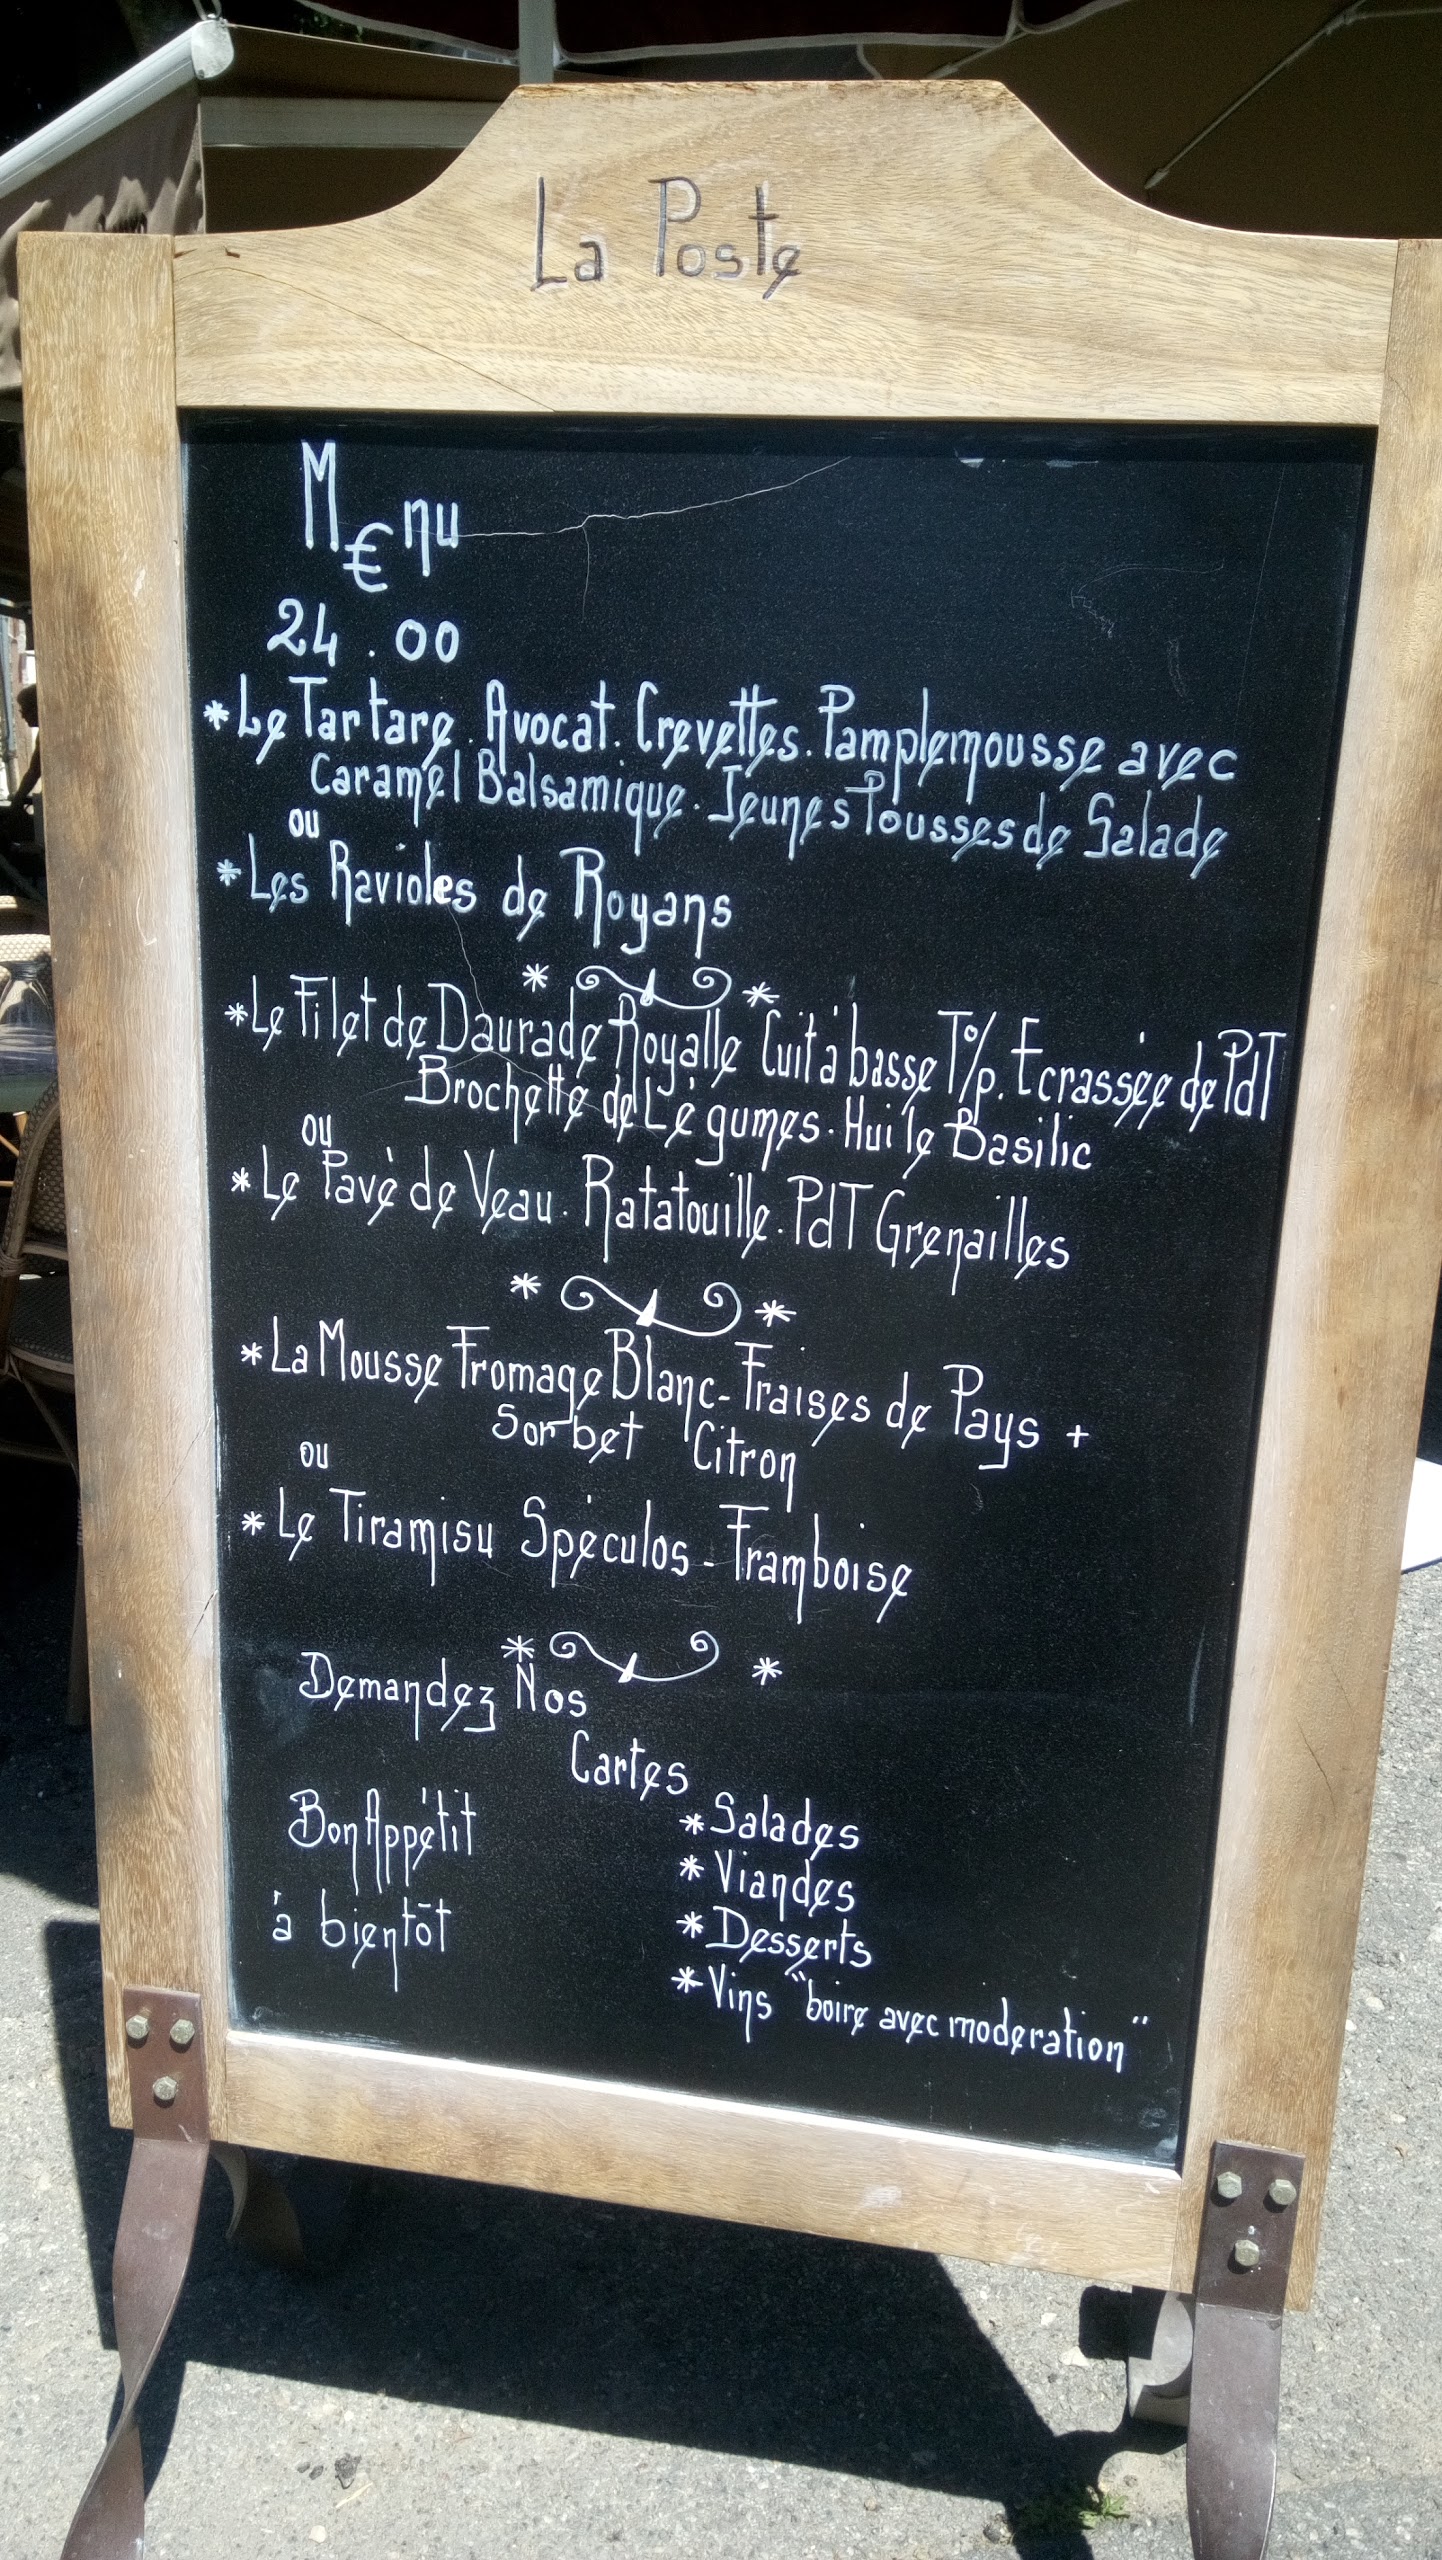 La Poste
M€nu
24.00
*Le Tartare. Avocat. Crevettes. Pamplemousse avec
Caramel Balsamique. Jeunes Pousses de Salade
ou
*Les Ravioles de Royans
*Le Filet de Daurade Royalle Cuit à basse T°/p. Ecrassée de PdT
Brochette de Légumes. Huile Basilic
ou
*Le Pavé de Veau. Ratatouille. PdT Grenailles
*La Mousse Fromage Blanc - Fraises de Pays +
Sorbet Citron
ou
*Le Tiramisu Spéculos - Framboise
Demandez Nos
Cartes
Bon Appétit
à bientôt
*Salades
*Viandes
*Desserts
*Vins "boire avec moderation"